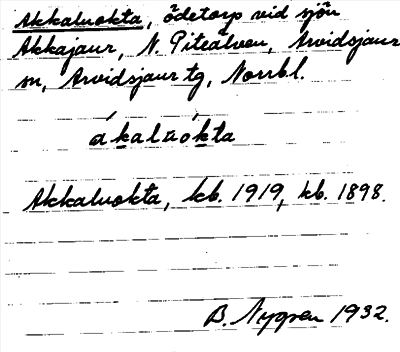 Akkaluokta, ödetorp vid sjön
Akkajaur, N. Piteälven, Arvidsjaur
sn, Arvidsjaur tg, Norrbl.
ákalu̯ók̀ta
Akkaluokta, kb. 1919, kb. 1898.
B. Nygren 1932.